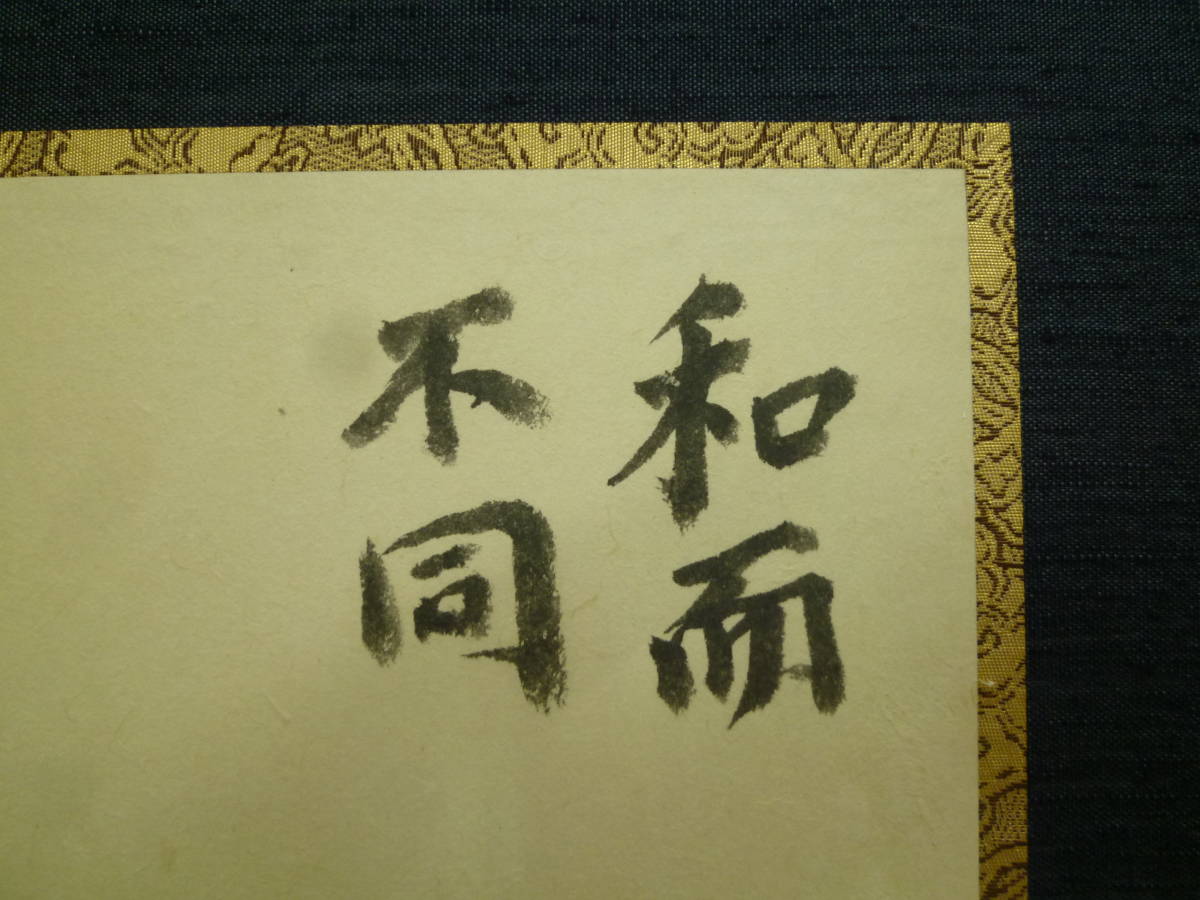 和而
不同